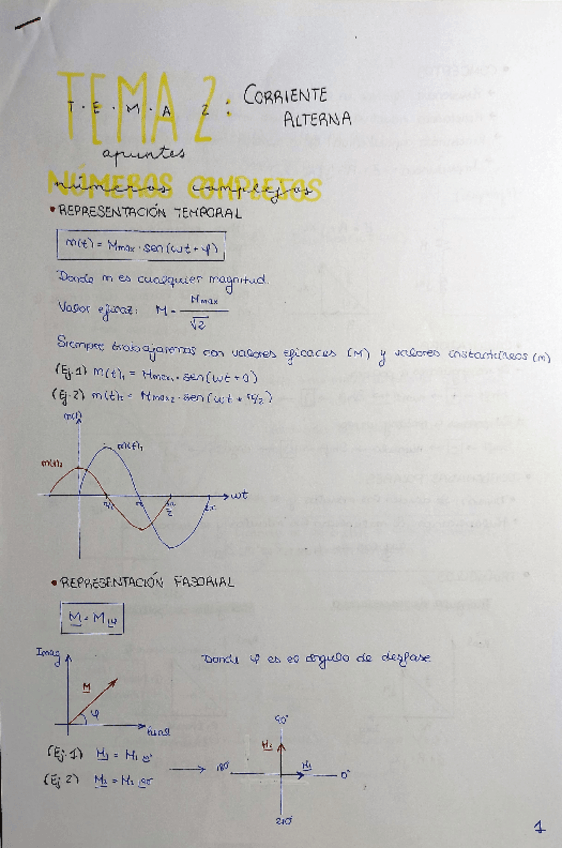 TEMA 2:
T·E·M·A 2
CORRIENTE
ALTERNA
apuntes
NÚMEROS COMPLEJOS
números complejos
• REPRESENTACIÓN TEMPORAL
m(t) = Mmax · sen(wt + φ)
Donde m es cualquier magnitud.
Valor eficaz: M = Mmax / √2
Siempre trabajaremos con valores eficaces (M) y valores instantáneos (m)
(Ej.1) m(t)₁ = Mmax₁ · sen(wt + 0)
(Ej.2) m(t)₂ = Mmax₂ · sen(wt + π/2)
m(t)
m(t)₁
m(t)₂
π/2 π 3π/2 2π wt
• REPRESENTACIÓN FASORIAL
M = M∠φ
Imag
Donde φ es el ángulo de desfase
M
φ
(Ej.1) M₁ = M₁ 0°
90°
M₂ M₁
180° 0°
270°
1